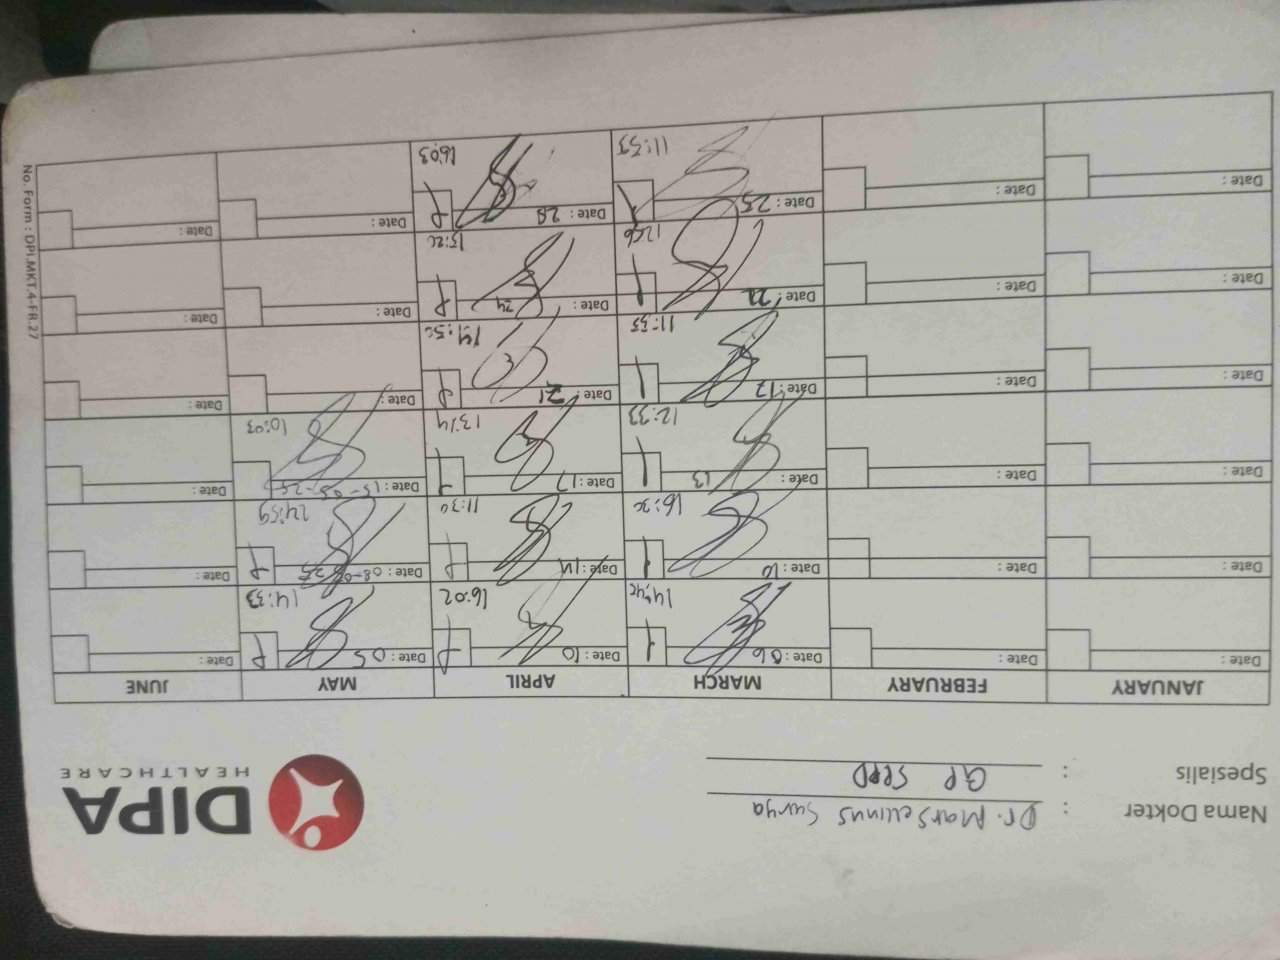 Nama Dokter : Dr. Marsellinus Surya
Spesialis : GP SPPD
DIPA
HEALTHCARE
JANUARY FEBRUARY MARCH APRIL MAY JUNE
Date : Date : Date : 06 Date : 10 Date : 05 Date :
16:02 14:33
Date : Date : Date : 10 Date : 14 Date : 08-05-25 Date :
16:30 11:30
Date : Date : Date : 13 Date : 17 Date : 15-05-25 Date :
12:33 13:14 10:03
Date : Date : Date : 17 Date : 21 Date : Date :
11:35 14:50
Date : Date : Date : 22 Date : 24 Date : Date :
12:06 15:20
Date : Date : Date : 25 Date : 28 Date : Date :
11:55 16:03
No. Form : DPI.MKT.4-FR.27